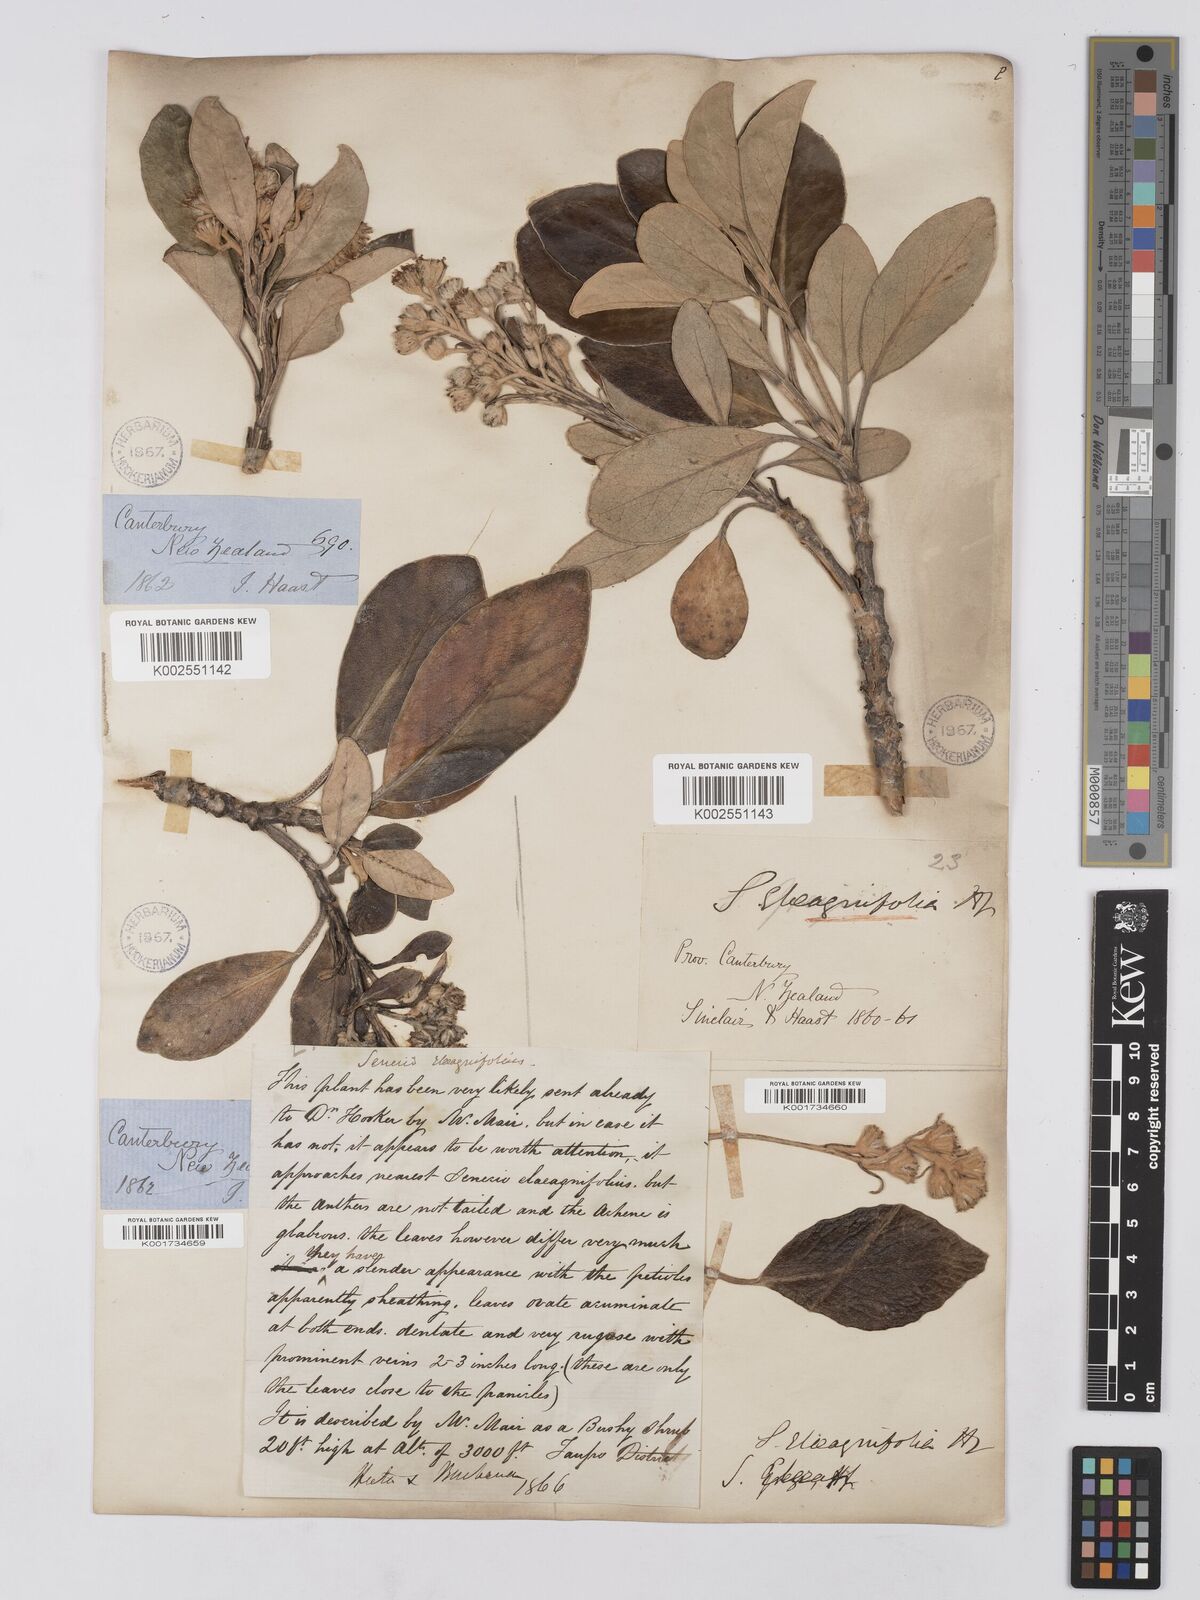 HERBARIUM
1867.
HOOKERIANUM
Canterbury
New Zealand 690.
1862 J. Haast
ROYAL BOTANIC GARDENS KEW
K002551142
HERBARIUM
1867.
HOOKERIANUM
ROYAL BOTANIC GARDENS KEW
K002551143
23
S Elaeagnifolia Hf
Prov. Canterbury
N. Zealand
Sinclair & Haast 1860-61
HERBARIUM
1867.
HOOKERIANUM
Canterbury
New Zea
1862 J.
ROYAL BOTANIC GARDENS KEW
K001734659
Senecio elaeagnifolius.
This plant has been very likely sent already
to Dr. Hooker by Mr. Mair, but in case it
has not, it appears to be worth attention, it
approaches nearest Senecio elaeagnifolius. but
the anthers are not tailed and the Achene is
glabrous. the leaves however differ very much
they have a slender appearance with the petioles
apparently sheathing. leaves ovate acuminate
at both ends. dentate and very rugose with
prominent veins 2-3 inches long. (these are only
the leaves close to the panicles)
It is described by Mr. Mair as a Bushy shrub
20 ft. high at Alt. of 3000 ft. Taupo District
1866
ROYAL BOTANIC GARDENS KEW
K001734660
S. Elaeagnifolia Hf
S.
inches
centimetres
Don Williams
M000857
Kew
Royal Botanic Gardens
copyright reserved
0 1 2 3 4 5 6 7 8 9 10
cm